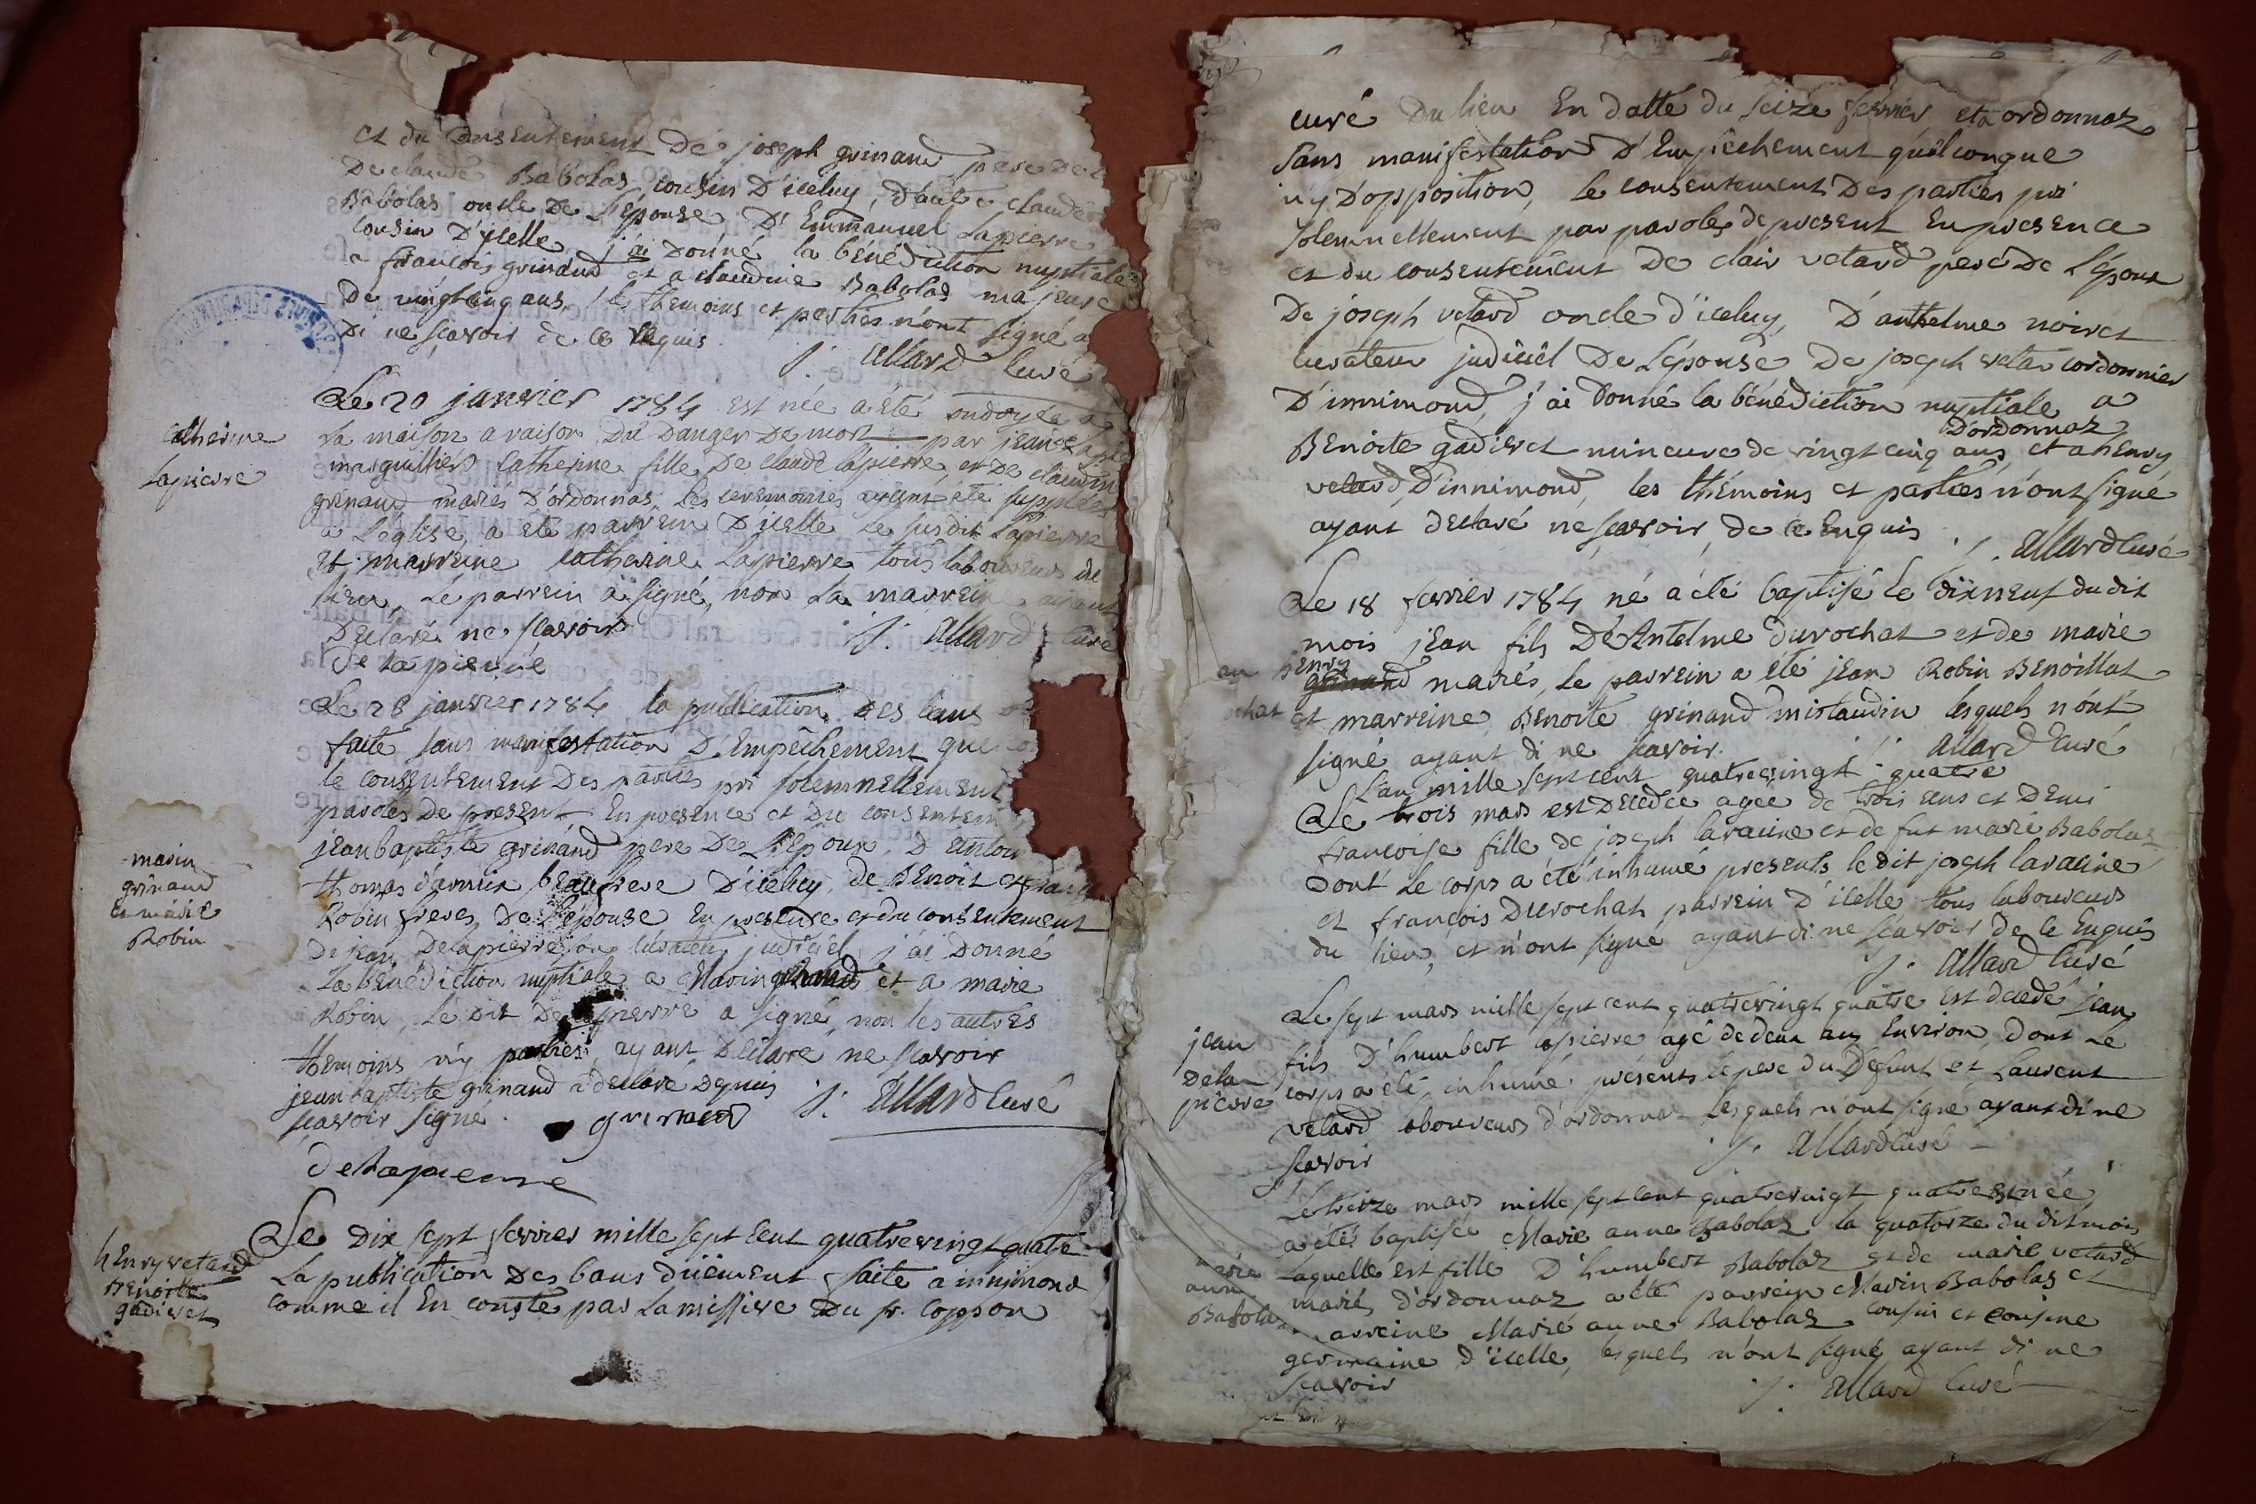 et du consentement de joseph grinand pere de
de claude Babolas cousin d'iceluy, d'autre claude
Babolas oncle de l'épouse d'Emmanuel Lapierre
cousin d'ycelle j'ai donné la bénédiction nuptiale
a françois grinand et a claudine Babolas majeure
de vingt cinq ans, les themoins et parties n'ont signé a
di ne sçavoir de ce requis
j. allard curé
catherine
lapierre
Le 20 janvier 1784 est née a été ondoyée a
la maison a raison du danger de mort par jean
marguillier catherine fille de claude lapierre, et de claudin
grinand mariés d'ordonnas; les ceremonies ayant été supplées
a l'église, a été parrein d'icelle le susdit Lapierre
et marreine catherine Lapierre tous laboureurs de
lieu, le parrein a signé, non la marrein ayant
declaré ne sçavoir j. allard curé
De lapierre
marin
grinand
et marie
Robin
Le 28 janvier 1784 la publication des bans
faite sans manifestation d'Empêchement quelco
le consentement des parties pri solemnellement
paroles de present En presence et du consentem
jean baptiste grinand pere de l'Epoux, d'antoi
thomas garnier beaufrere d'iceluy, de Benoit et
Robin freres de l'épouse En presence et du consentement
de jean Delapierre son curateur judiciel j'ai donné
la bénédiction nuptiale a Marin grinand et a marie
Robin, le dit Delapierre a signé, non les autres
themoins n'y parties ayant declaré ne sçavoir
jean baptiste grinand a declaré depuis j. allard curé
sçavoir signé. grinand
delapierre
henry vetard
Benoite
gadivet
Le dix sept fevrier mille sept cent quatrevingt quatre
la publication des bans duëment faite a innimond
comme il En conste par la missive du sr. Coppson
curé du lieu En datte du seize fevrier et a ordonnaz
sans manifestation d'Empêchement quelconque
n'y d'opposition, le consentement des parties pri
solemnellement par paroles de present En presence
et du consentement de clair vetard pere de l'époux
de joseph vetard oncle d'iceluy, d'anthelme noiret
curateur judiciel de l'épouse de joseph vetar cordonnier
d'innimond, j'ai donné la bénédiction nuptiale a
d'ordonnaz
Benoite gadivet mineure de vingt cinq ans, et a henry
vetard d'innimond, les thémoins et parties n'ont signé
ayant declaré ne sçavoir de ce Enquis j. allard curé
Le 18 fevrier 1784 né a été baptisé le dixneuf du dit
mois jean fils de Antelme durochat et de marie
henry
grinand mariés, le parrein a été jean Robin Benoillat
et marreine Benoite grinand mistaudin lesquels n'ont
signé ayant di ne sçavoir. j. allard curé
L'an mille sept cent quatrevingt quatre
Le trois mars est decedée agée de trois ans et demi
françoise fille de joseph laracine et de fut marie Babolaz
dont le corps a été inhumé presents le dit joseph laracine
et françois Durochat parrein d'icelle tous laboureurs
du lieu, et n'ont signé ayant di ne sçavoir de ce Enquis
j. allard curé
jean
dela
pierre
Le sept mars mille sept cent quatrevingt quatre est decedé jean
fils d'humbert lapierre agé de deux ans Environ dont le
corps a été inhumé, présents le pere du défunt et Laurent
vetard laboureurs d'ordonnaz lesquels n'ont signé ayant di ne
sçavoir j. allard curé
marie
anne
Babola
Le treize mars mille sept cent quatrevingt quatre est née
a été baptisée Marie anne Babolaz la quatorze du dit mois
laquelle est fille d'humbert Babolaz et de marie vetard
mariés d'ordonnaz a été parrein Marin Babolas et
marreine Marie anne Babolaz cousin et cousine
germaine d'icelle, lesquels n'ont signé ayant di ne
sçavoir j. allard curé